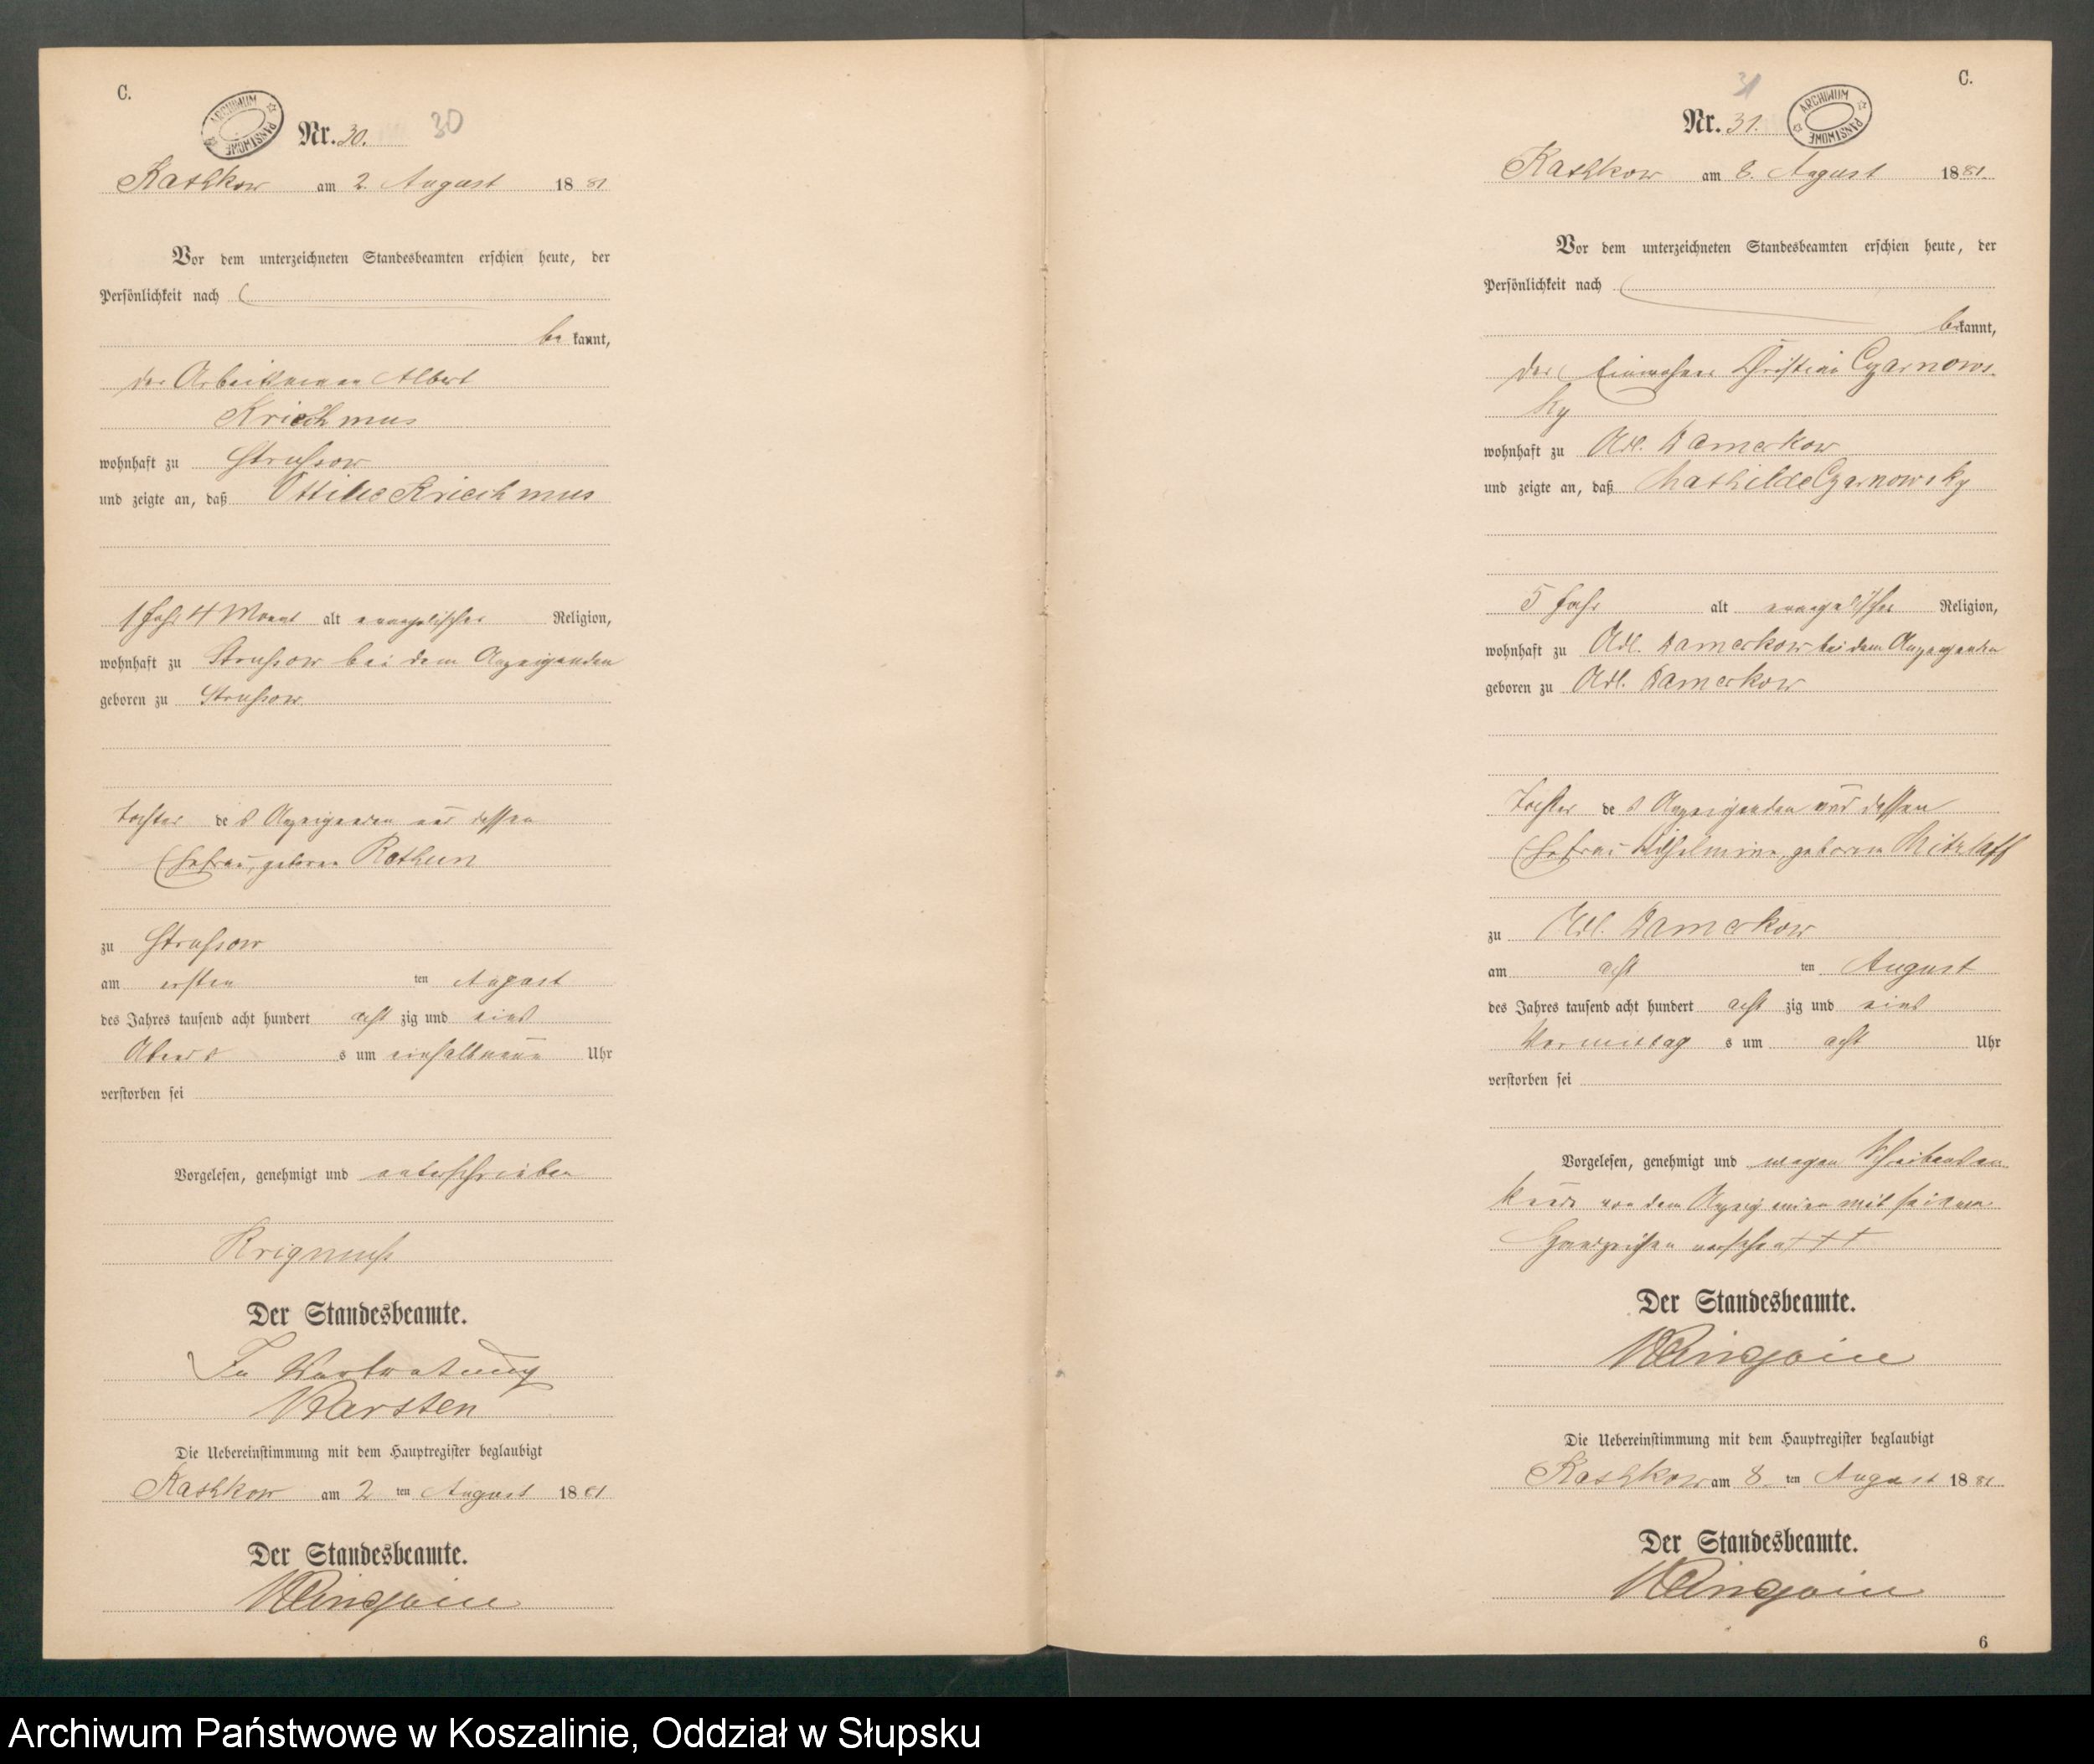 C.
ARCHIWUM PAŃSTWOWE
Nr. 30. 30
Rathkow am 2. August 1881
Vor dem unterzeichneten Standesbeamten erschien heute, der
Persönlichkeit nach
be kannt,
der Arbeitsmann Albert
Kriechmus
wohnhaft zu Strussow
und zeigte an, daß Ottilie Kriechmus
1 Jahr 4 Monat alt evangelischer Religion,
wohnhaft zu Strussow bei dem Anzeigenden
geboren zu Strussow
Tochter des Anzeigenden und dessen
Ehefrau, geboren Rathun
zu Strussow
am ersten ten August
des Jahres tausend acht hundert acht zig und eins
Abends um einhalbneun Uhr
verstorben sei
Vorgelesen, genehmigt und unterschrieben
Krigmuss
Der Standesbeamte.
In Vertretung
Karsten
Die Uebereinstimmung mit dem Hauptregister beglaubigt
Rathkow am 2 ten August 1881
Der Standesbeamte.
C.
31
Nr. 31.
ARCHIWUM PAŃSTWOWE
Rathkow am 8. August 1881.
Vor dem unterzeichneten Standesbeamten erschien heute, der
Persönlichkeit nach
bekannt,
der Einwohner Christian Czarnows-
ky
wohnhaft zu Adl. Damerkow
und zeigte an, daß Mathilde Czarnowsky
5 Jahr alt evangelischer Religion,
wohnhaft zu Adl. Damerkow bei dem Anzeigenden
geboren zu Adl. Damerkow
Tochter des Anzeigenden und dessen
Ehefrau Wilhelmine, geboren Mitzlaff
zu Adl. Damerkow
am acht ten August
des Jahres tausend acht hundert acht zig und eins
Vormittags um acht Uhr
verstorben sei
Vorgelesen, genehmigt und wegen Schreibensun-
kunde von dem Anzeigenden mit seinem
Handzeichen versehen +++
Der Standesbeamte.
Die Uebereinstimmung mit dem Hauptregister beglaubigt
Rathkow am 8. ten August 1881
Der Standesbeamte.
6
Archiwum Państwowe w Koszalinie, Oddział w Słupsku